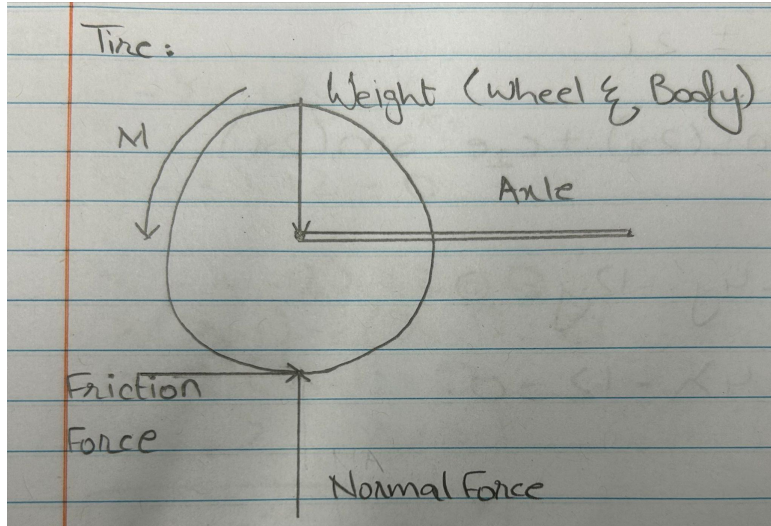 Tire:
Weight (Wheel & Body)
M
Axle
Friction
Force
Normal Force